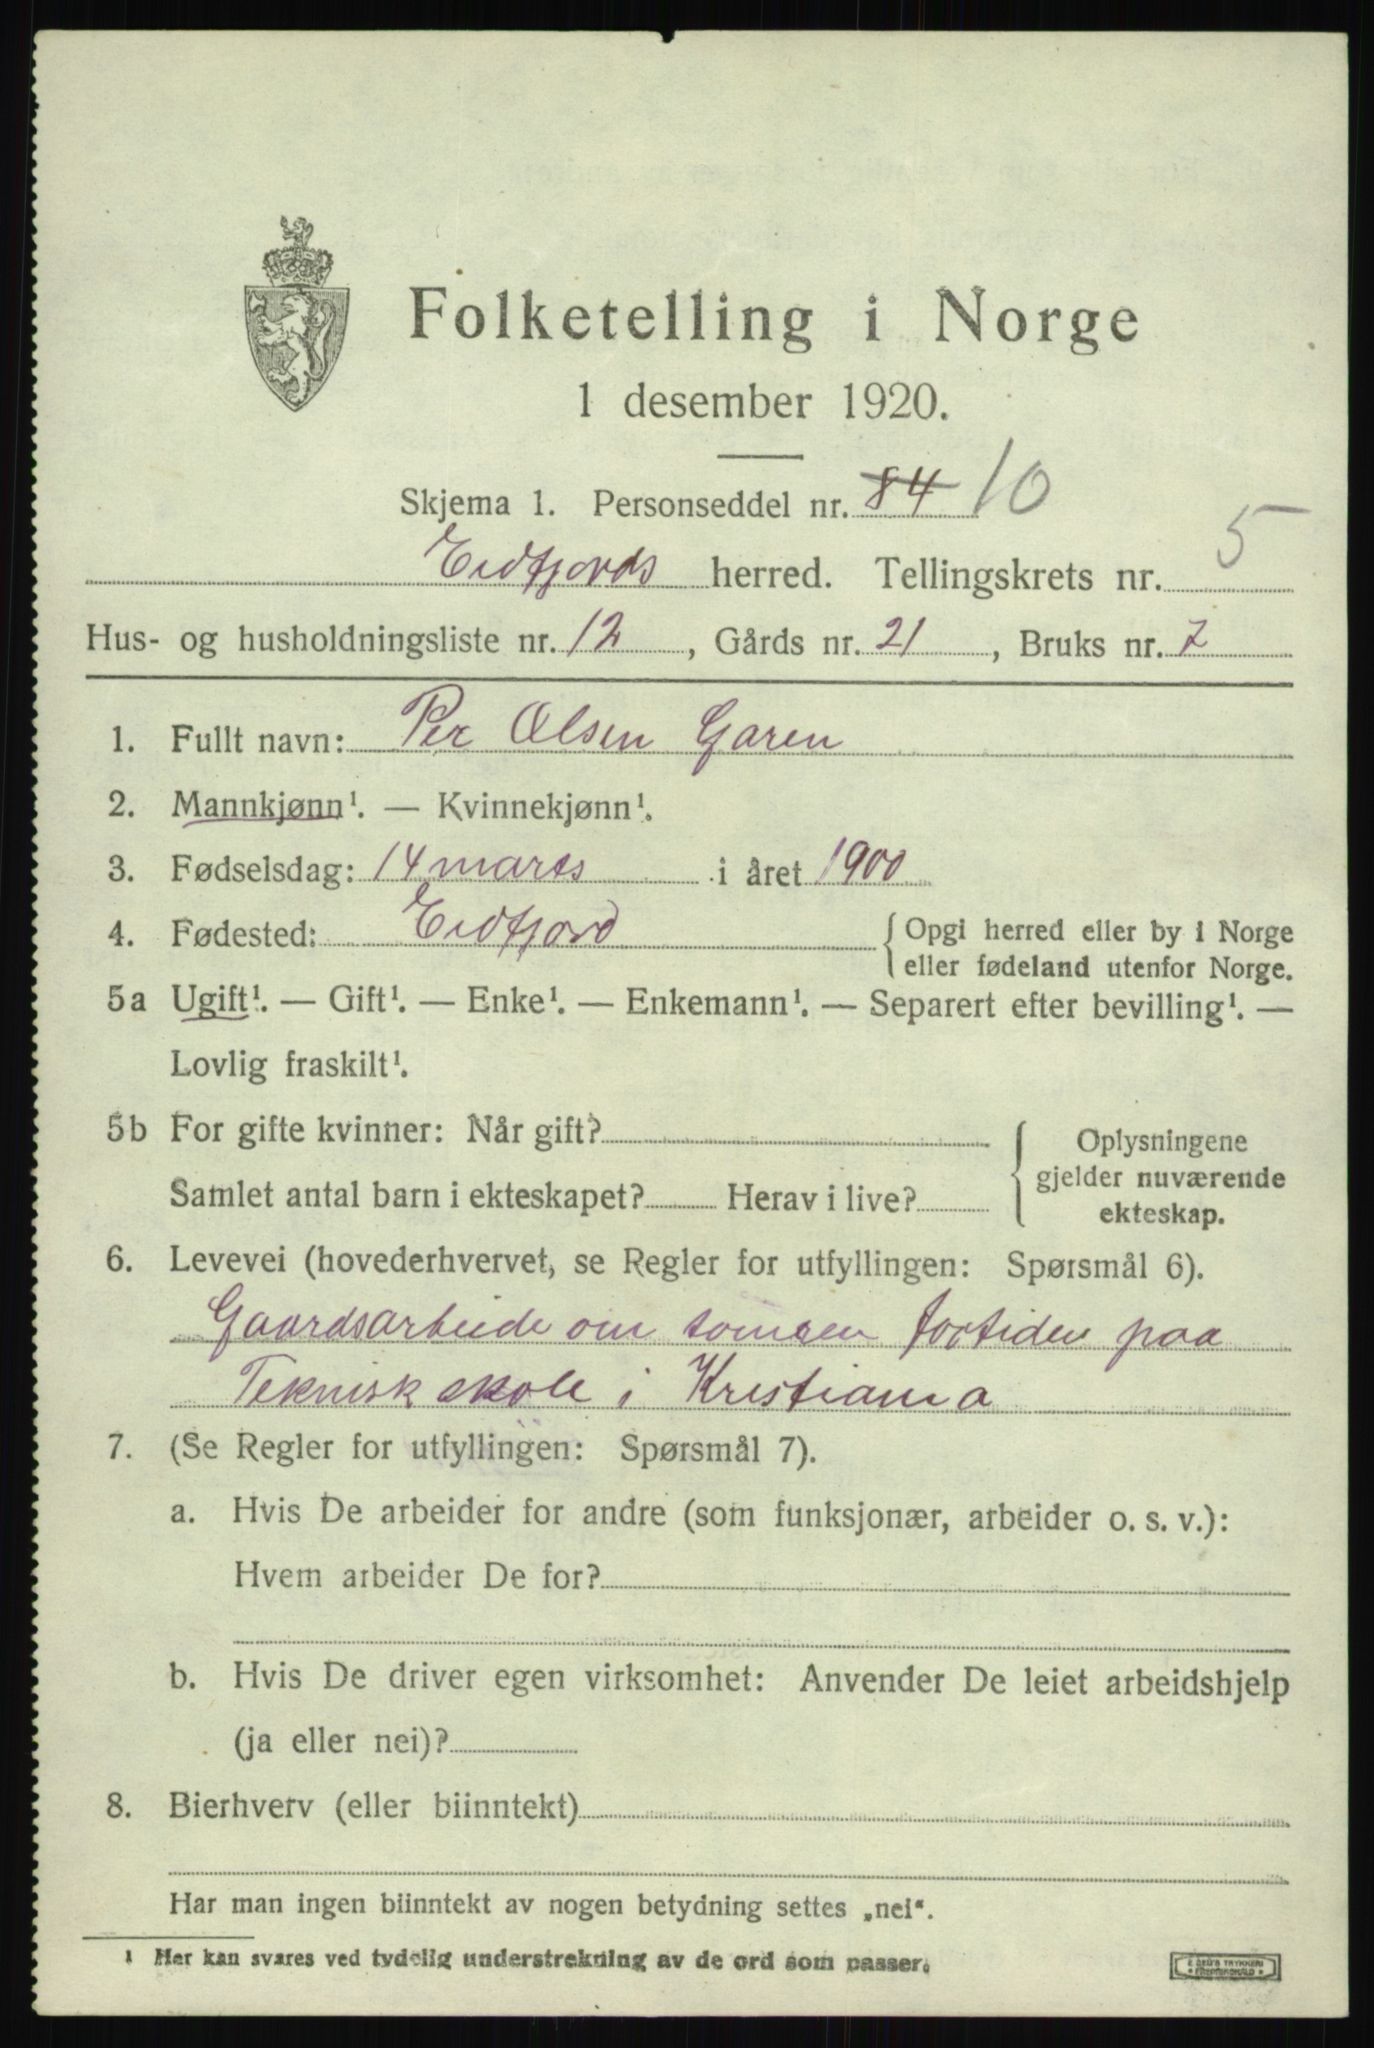 Folketelling i Norge
1 desember 1920.
Skjema 1. Personseddel nr. 84 10
Eidfjords herred. Tellingskrets nr. 5
Hus- og husholdningsliste nr. 12, Gårds nr. 21, Bruks nr. 7
1. Fullt navn: Per Olsen Garen
2. Mannkjønn¹. — Kvinnekjønn¹.
3. Fødselsdag: 14 marts i året 1900
4. Fødested: Eidfjord { Opgi herred eller by i Norge
eller fødeland utenfor Norge.
5a Ugift¹. — Gift¹. — Enke¹. — Enkemann¹. — Separert efter bevilling¹. —
Lovlig fraskilt¹.
5b For gifte kvinner: Når gift?
Samlet antal barn i ekteskapet? Herav i live?
{ Oplysningene
gjelder nuværende
ekteskap.
6. Levevei (hovederhvervet, se Regler for utfyllingen: Spørsmål 6).
Gaardsarbeide om someren fortiden paa
Teknisk skole i Kristiania
7. (Se Regler for utfyllingen: Spørsmål 7).
a. Hvis De arbeider for andre (som funksjonær, arbeider o. s. v.):
Hvem arbeider De for?
b. Hvis De driver egen virksomhet: Anvender De leiet arbeidshjelp
(ja eller nei)?
8. Bierhverv (eller biinntekt)
Har man ingen biinntekt av nogen betydning settes „nei“.
1 Her kan svares ved tydelig understrekning av de ord som passer.